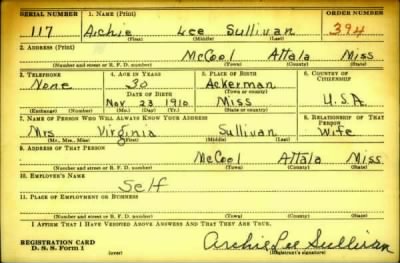 SERIAL NUMBER 1. NAME (Print) ORDER NUMBER
117 Archie Lee Sullivan 394
(First) (Middle) (Last)
2. ADDRESS (Print)
McCool Attala Miss
(Number and street or R. F. D. number) (Town) (County) (State)
3. TELEPHONE 4. AGE IN YEARS 5. PLACE OF BIRTH 6. COUNTRY OF CITIZENSHIP
None 30 Ackerman
DATE OF BIRTH (Town or county)
Nov 23 1910 Miss U.S.A.
(Exchange) (Number) (Mo.) (Day) (Yr.) (State or country)
7. NAME OF PERSON WHO WILL ALWAYS KNOW YOUR ADDRESS 8. RELATIONSHIP OF THAT PERSON
Mrs Virginia Sullivan Wife
(Mr., Mrs., Miss) (First) (Middle) (Last)
9. ADDRESS OF THAT PERSON
McCool Attala Miss
(Number and street or R. F. D. number) (Town) (County) (State)
10. EMPLOYER'S NAME
Self
11. PLACE OF EMPLOYMENT OR BUSINESS
(Number and street or R. F. D. number) (Town) (County) (State)
I AFFIRM THAT I HAVE VERIFIED ABOVE ANSWERS AND THAT THEY ARE TRUE.
REGISTRATION CARD
D. S. S. Form 1 (over) Archie Lee Sullivan
(Registrant's signature)